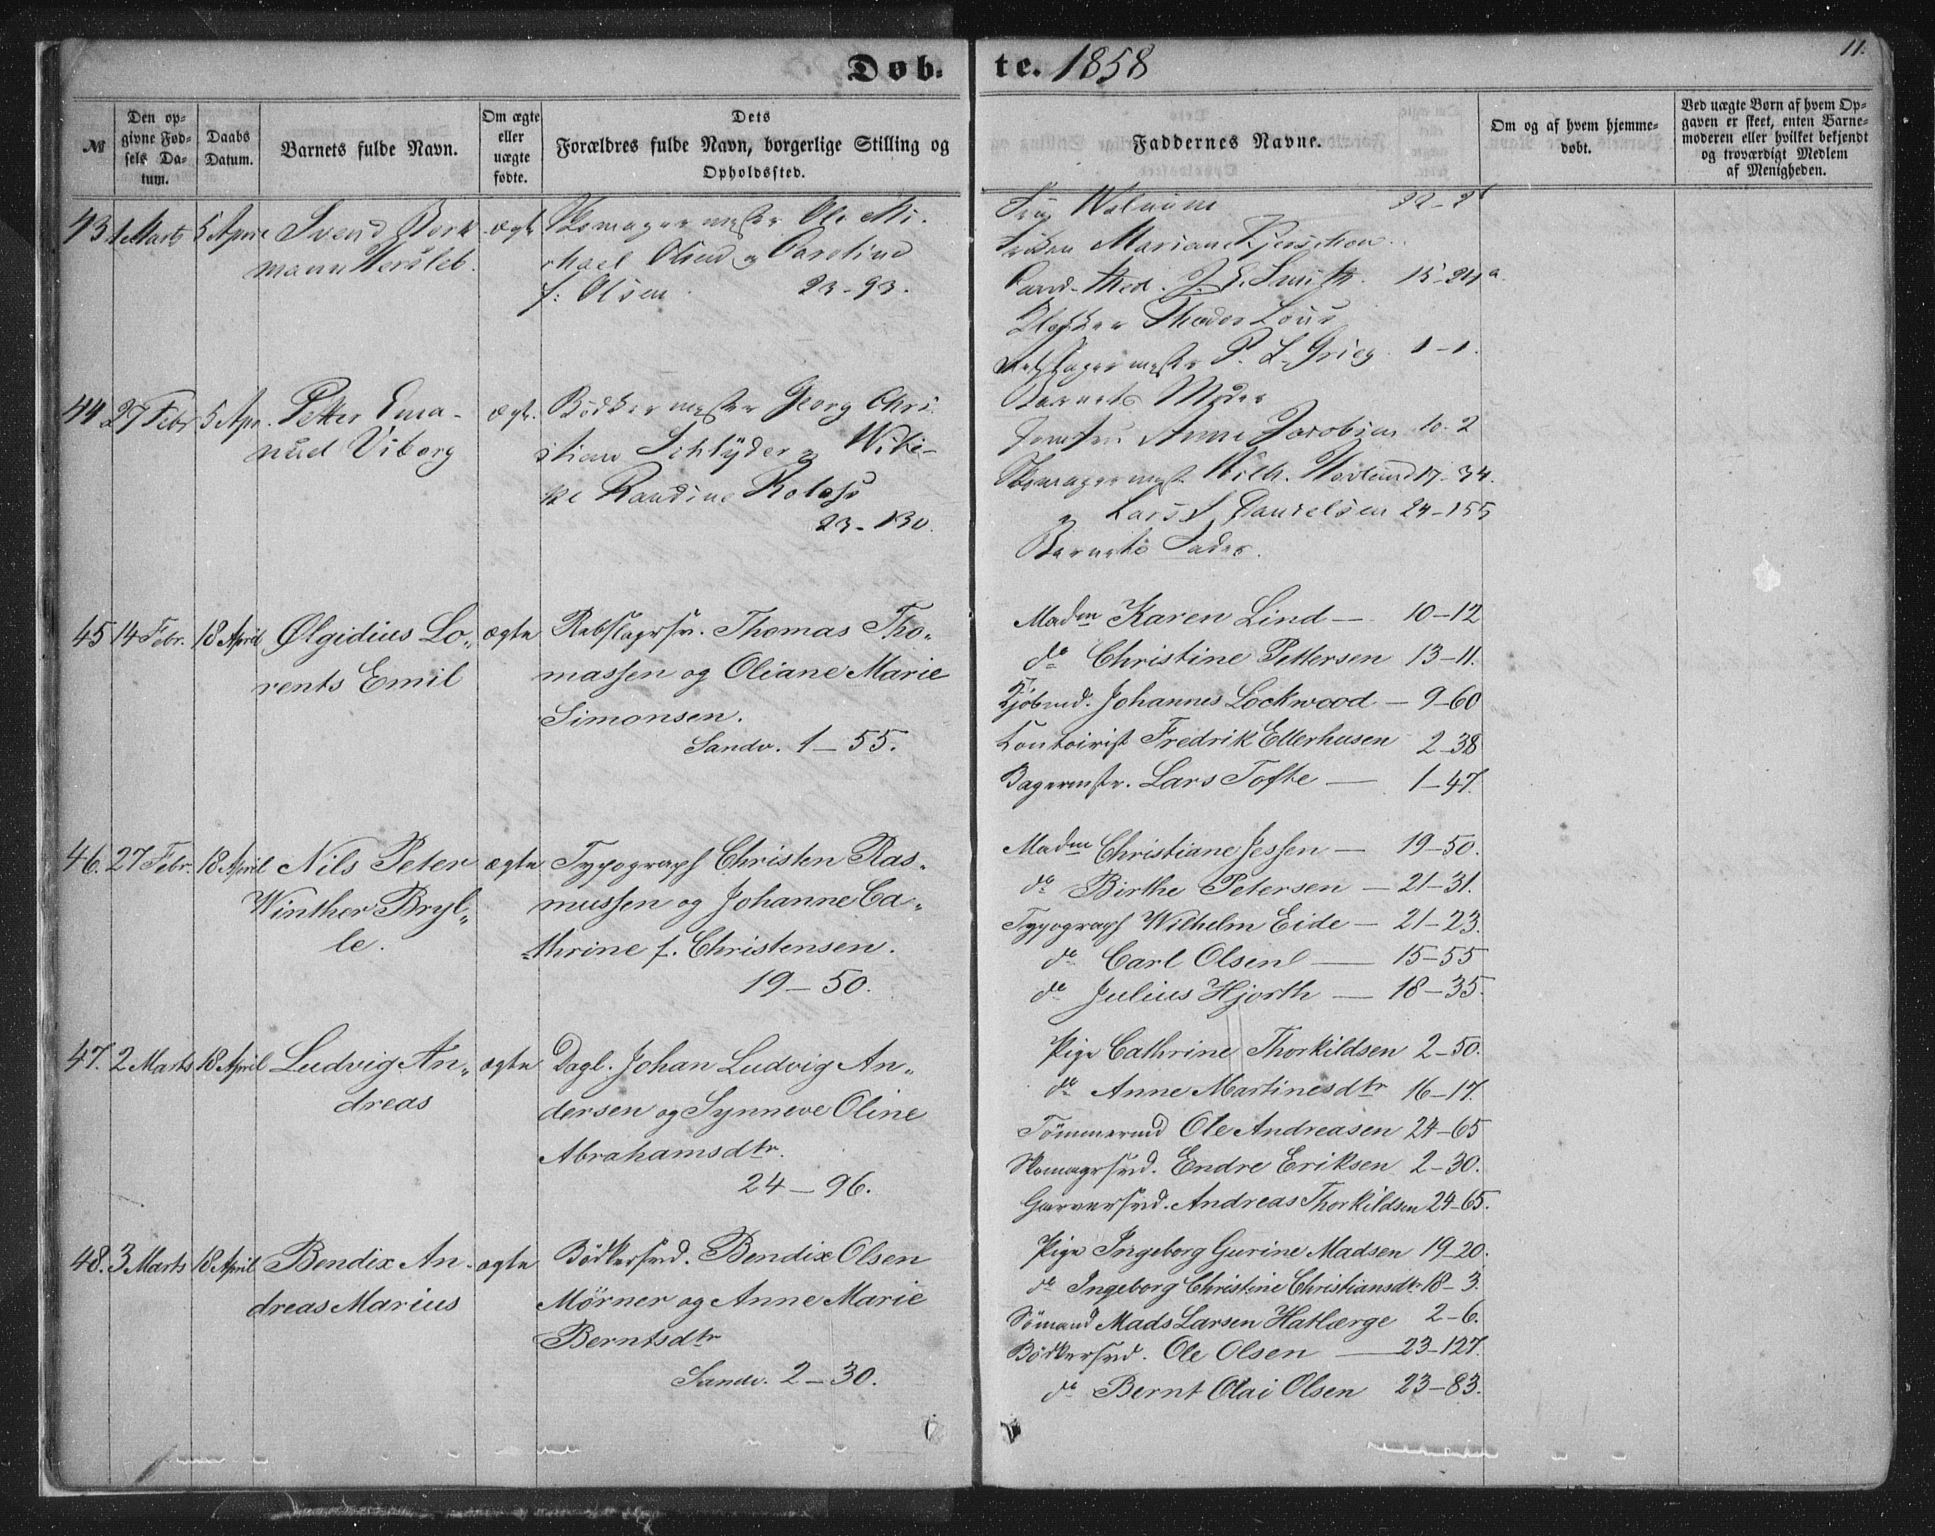 Døb-te. 1858
11.
№
Den opgivne Fødsels Datum.
Daabs Datum.
Barnets fulde Navn.
Om ægte eller uægte fødte.
Dets Forældres fulde Navn, borgerlige Stilling og Opholdssted.
Faddernes Navne.
Om og af hvem hjemmedøbt.
Ved uægte Børn af hvem Opgaven er skeet, enten Barnemoderen eller hvilket bekjendt og troværdigt Medlem af Menigheden.
43 1 Marts 5 April Svend Bork
mann Hersleb.
ægte
Skomagermester Ole Mi-
chael Olsen og Caroline
f: Olsen 23-93.
Marian
Cand. Med. J. E. Smith. 15-24a
Klokker Thodes Lous
P. L. Grieg. 1-1.
Barnets Moder
44 27 Febr 5 Apr. Petter Ema-
nuel Viborg
ægte.
Bødkermester Georg Chri-
stian Schlyder og Wibi-
ke Randine
23-130.
Jomfru Anne Jacobsen 10-2
Skomagermest Wilh. 17-34.
" Lars S. Danielsen 24-155
Barnets Fader.
45 14 Febr. 18 April Ølgidius Lo-
rents Emil
ægte
Rebslagersv. Thomas Tho-
massen og Oliane Marie
Simonsen.
Sandv. 1-55.
Madm Karen Lind — 10-12
do Christine Pettersen 13-11.
Kjøbmd. Johannes Lockwood — 9-60
Contoirist Fredrik Ellerhusen 2-38
Bagermstr. Lars Tofte — 1-47.
46. 27 Febr. 18 April Nils Peter
Winther Bryl-
le.
ægte
Typograph Christen Ras-
mussen og Johanne Ca-
thrine f. Christensen.
19-50.
Madm Christiane Jessen — 19-50.
do Birthe Petersen — 21-31.
Typograph Wilhelm Eide — 21-23.
do Carl Olsen — 15-55
do Julius Hjorth — 18-35.
47. 2 Marts 18 April Ludvig An-
dreas
ægte
Dagl. Johan Ludvig An-
dersen og Synneve Oline
Abrahamsdtr.
24-96.
Pige Cathrine Thorkildsen 2-50.
do Anne Martinesdtr 16-17.
Tømmermd Ole Andreasen 24-65
Skomagrsvd. Endre Eriksen 2-30.
Garversvd. Andreas Thorkildsen 24-65.
48. 3 Marts 18 April Bendix An-
dreas Marius
ægte
Bødkersvd. Bendix Olsen
Mörner og Anne Marie
Berntsdtr
Sandv. 2-30.
Pige Ingeborg Gurine Madsen 19-20.
do Ingeborg Christine Christiansdtr 18-3.
Sömand Mads Larsen Hatlærge 2-6.
Bödkersvd. Ole Olsen — 23-127.
do Bernt Olai Olsen 23-83.